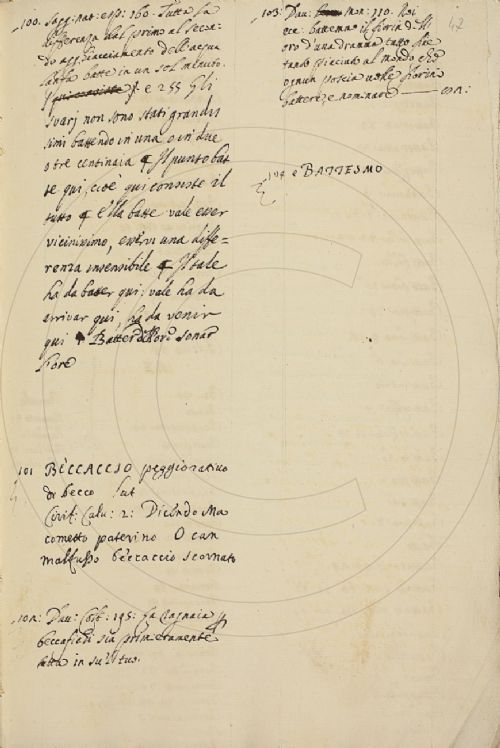 100. Sagg: nat: esp: 160. Tutta la
differenza dal primo al secon-
do agghiacciamento dell'acqua
batte in un sol minuto.
e 255 Gli
svarj non sono stati grandis
simi battendo in una o in due
o tre centinaia Il punto bat
te qui, cioè qui consiste il
tutto E lla batte vale esser
vicinissimo, esservi una diffe=
renza insensibile Il tale
ha da batter qui: vale ha da
arrivar qui, ha da venir
qui Batter dell'ore sonar
l'ore
101 BECCACCIO peggiorativo
di becco Lat
Civif: Calu: 2: Dicendo Ma
cometto paterino O can
malfusso beccaccio scornato
102: Dav: Colt: 195: La ragnaia
beccafichi sia primieramente
in sul
103: Dav: mon: 110. Noi
ecc. battemmo il fiorin
oro d'una dramma tutto
tanto piaciuto al mondo che
ognun poscia volle fiorin
battere, e nominare con:
104 e BATTESMO
42